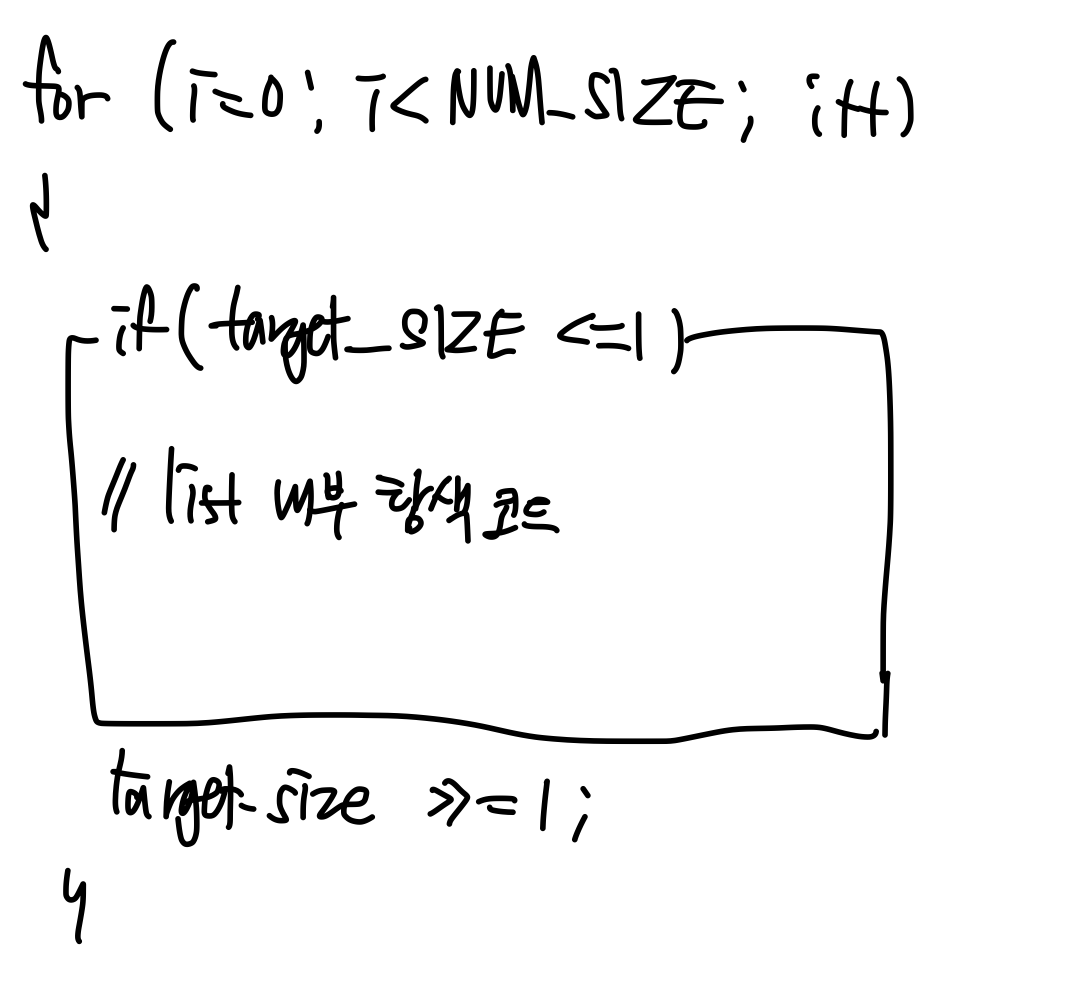 for (i=0; i<NUM_SIZE; i++)
{
if(target_SIZE <=1)
// list 내부 탐색 코드
target_size >>=1;
}